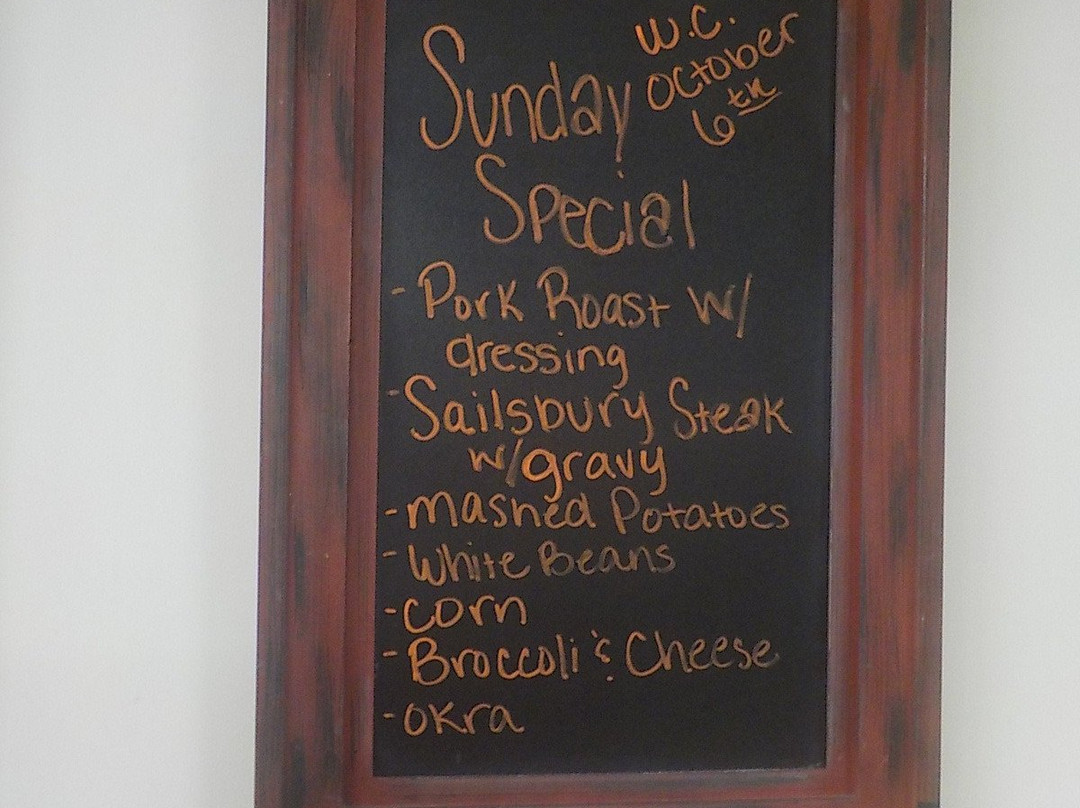 Sunday
Special
W.C.
October
6th
- Pork Roast w/
dressing
- Sailsbury Steak
w/gravy
- mashed Potatoes
- White Beans
- corn
- Broccoli & Cheese
- okra